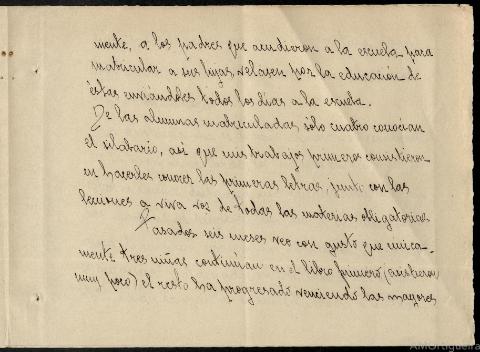 mente, a los padres que acudieron a la escuela para
matricular a sus hijas, velasen por la educación de
éstas enviándoles todos los días a la escuela.
De las alumnas matriculadas, sólo cuatro conocían
el silabario, así que mis trabajos primeros consistieron
en hacerles conocer las primeras letras, junto con las
lecciones a viva voz de todas las materias obligatorias
Pasados seis meses veo con gusto que única-
mente tres niñas continúan en el libro primero (asistieron
muy poco) el resto ha progresado venciendo las mayores
AMOrtigueira